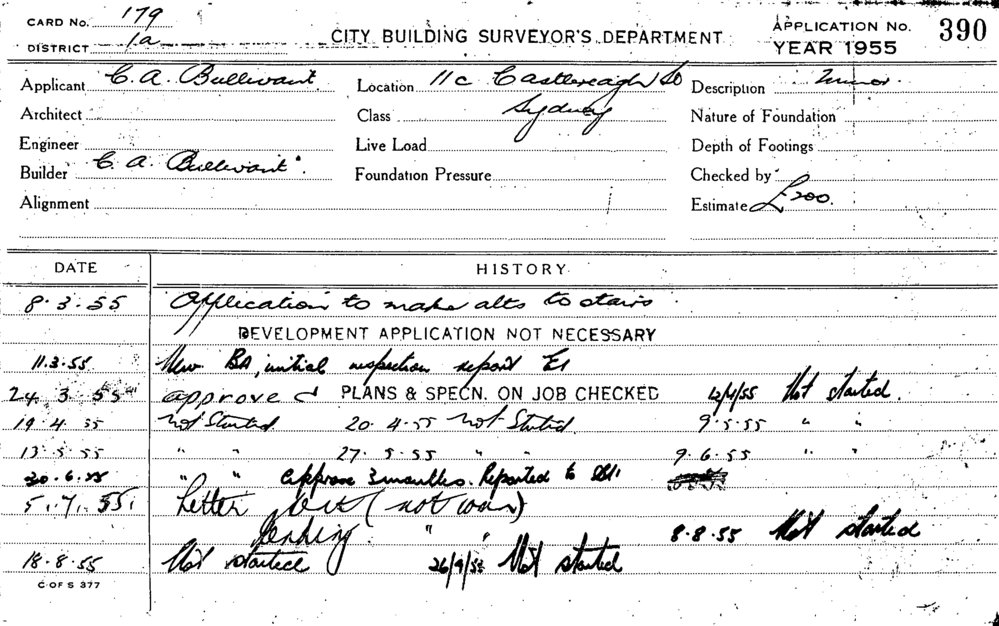 CARD No. 179
DISTRICT 1a
CITY BUILDING SURVEYOR'S DEPARTMENT
APPLICATION No. 390
YEAR 1955
Applicant C. A. Bullivant Location 11c Castlereagh St Description Minor
Architect Class Sydney Nature of Foundation
Engineer Live Load Depth of Footings
Builder C. A. Bullivant Foundation Pressure Checked by
Alignment Estimate £200.
DATE HISTORY
8.3.55 Application to make alts to stairs
DEVELOPMENT APPLICATION NOT NECESSARY
11.3.55 New BA, initial inspection report
24.3.55 approved PLANS & SPECN. ON JOB CHECKED 12/4/55 Not started.
19.4.55 Not Started 20.4.55 Not Started 9.5.55 " "
13.5.55 " " 27.5.55 " " 9.6.55 " "
30.6.55 " " approx 3 months. Reported to
5.7.55. Letter (not
" " 8.8.55 Not started
18.8.55 Not started 26/9/55 Not started
C OF S 377